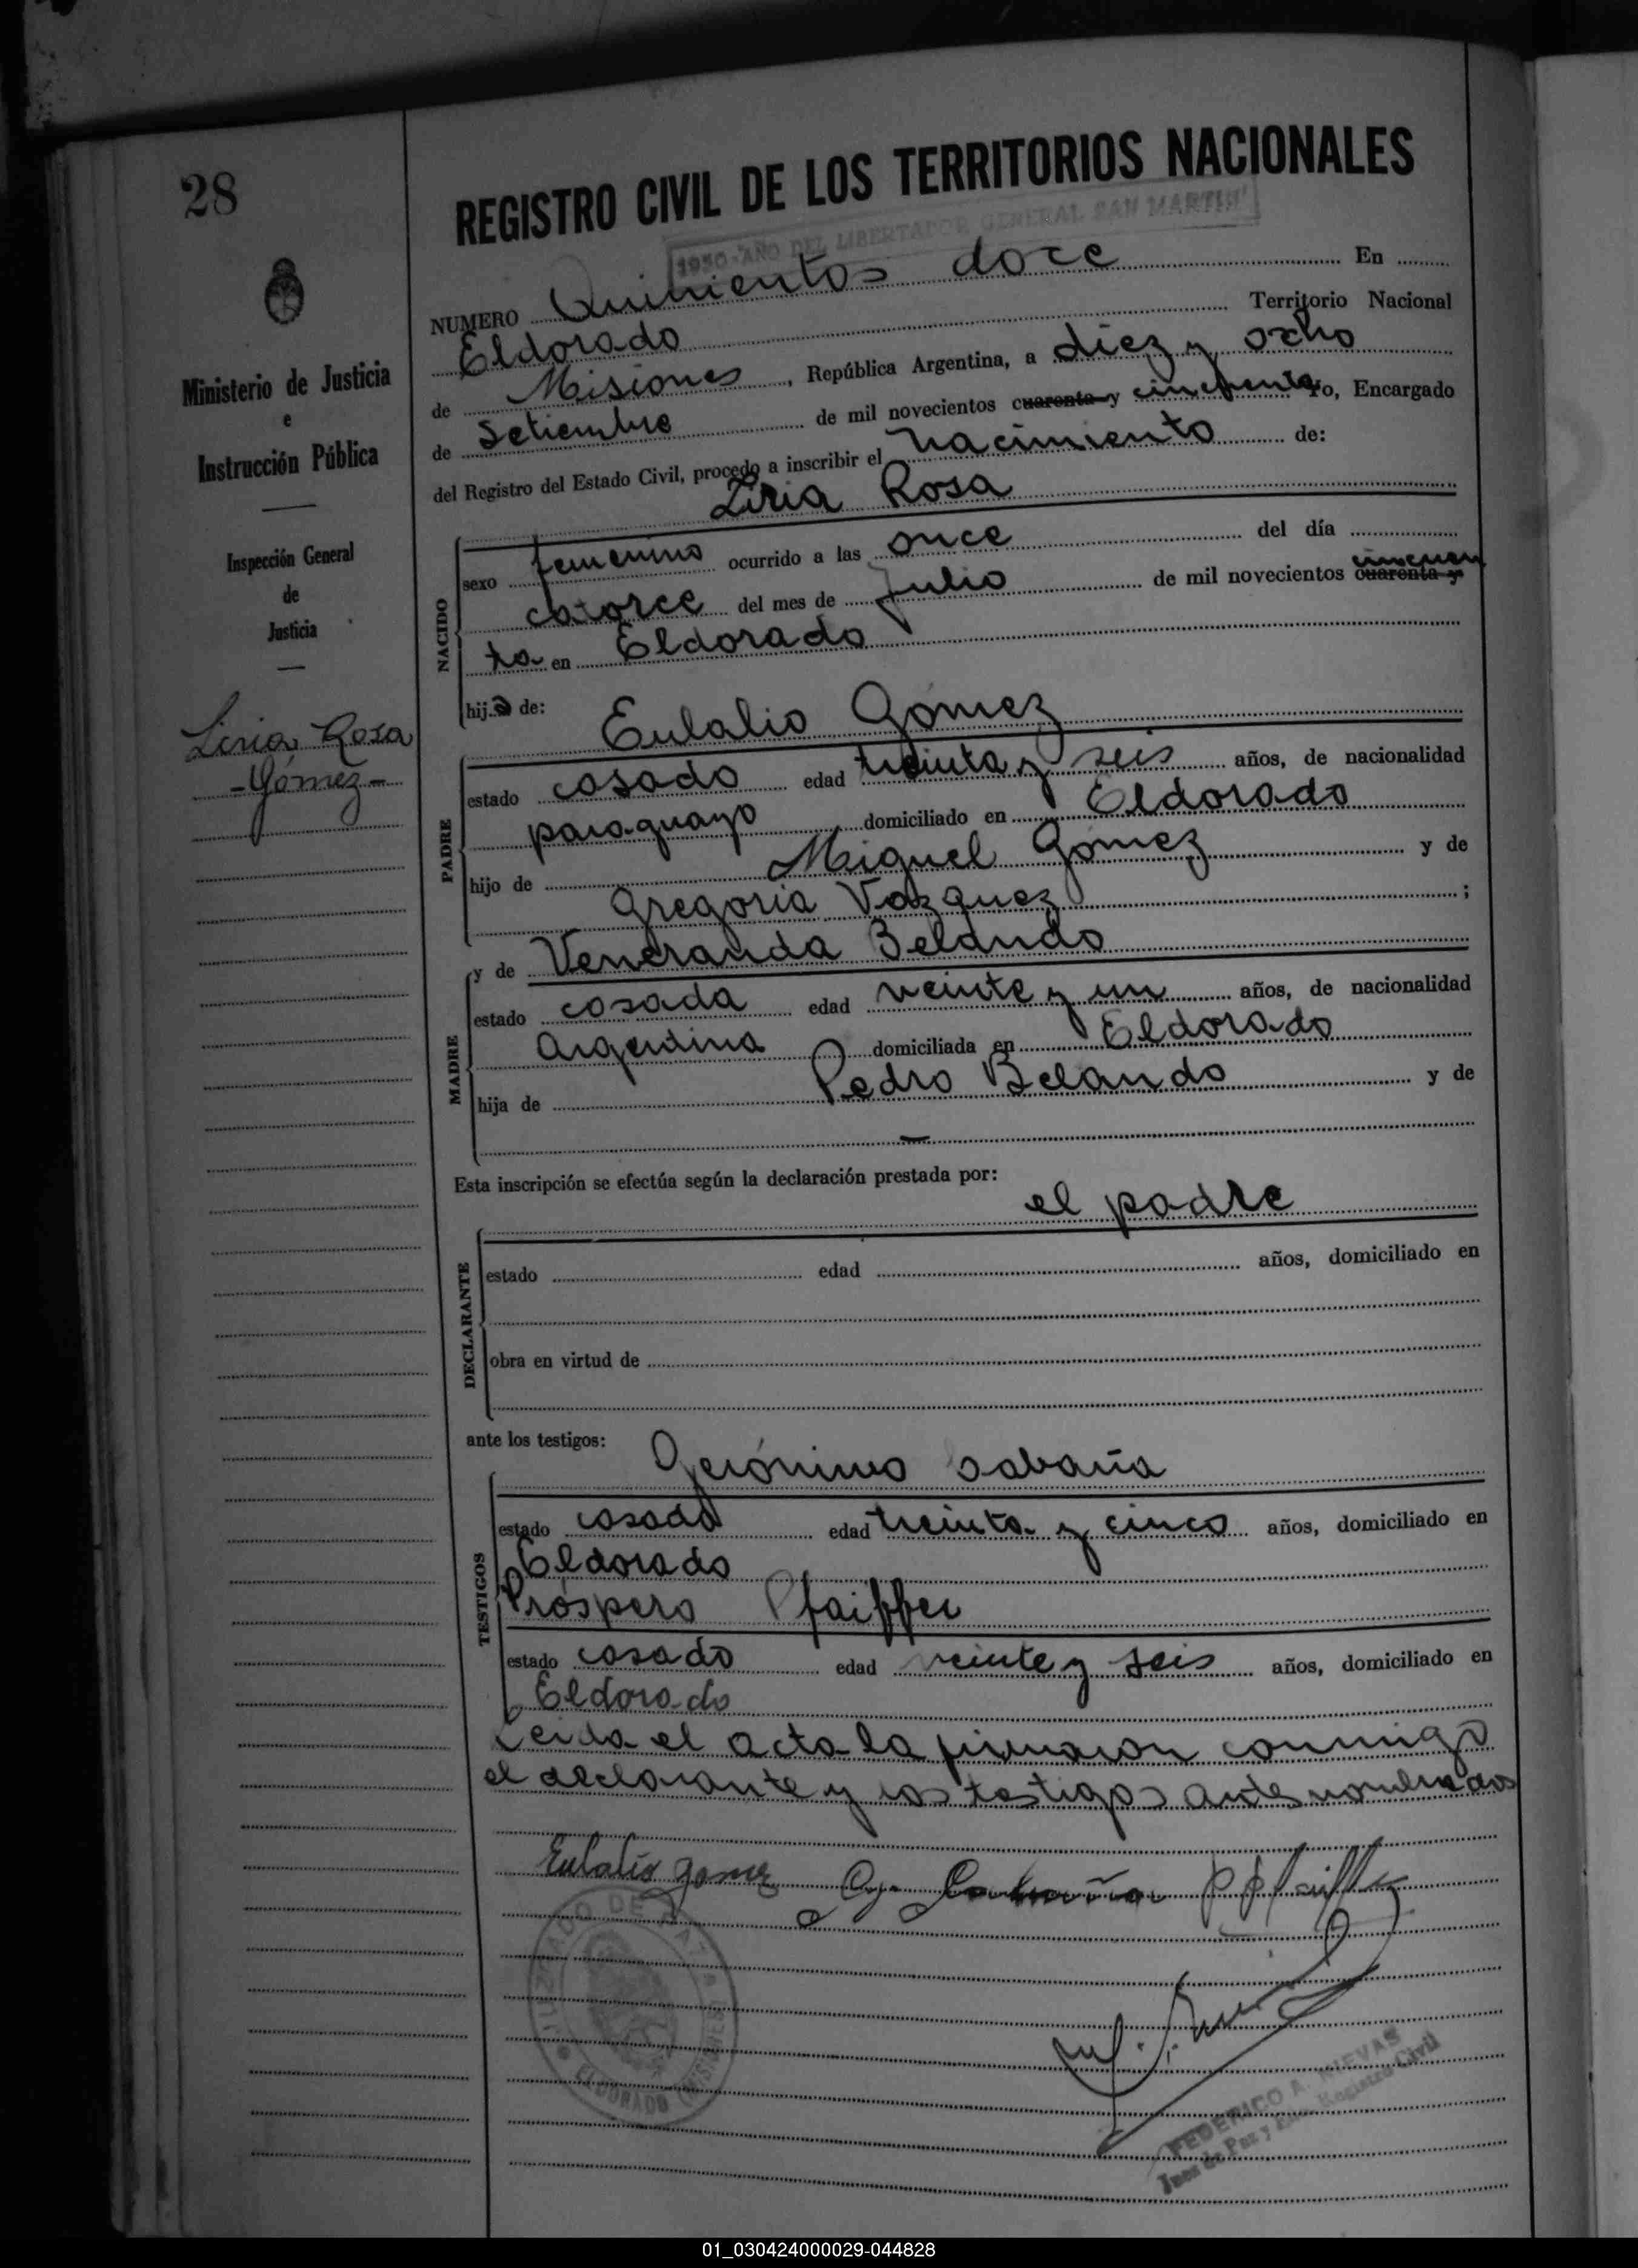 28
REGISTRO CIVIL DE LOS TERRITORIOS NACIONALES
1950-AÑO DEL LIBERTADOR GENERAL SAN MARTIN
NUMERO Quinientos doce En
Eldorado Territorio Nacional
de Misiones, República Argentina, a diez y ocho
de Setiembre de mil novecientos cuarenta y cincuenta Yo, Encargado
del Registro del Estado Civil, procedo a inscribir el nacimiento de:
Liria Rosa
Ministerio de Justicia
e
Instrucción Pública
Inspección General
de
Justicia
Liria Rosa
-Gómez-
NACIDO
sexo femenino ocurrido a las once del día
catorce del mes de Julio de mil novecientos cuarenta y cincuen
ta en Eldorado
hija de: Eulalio Gómez
PADRE
estado casado edad treinta y seis años, de nacionalidad
paraguayo domiciliado en Eldorado
hijo de Miguel Gómez y de
Gregoria Vazquez ;
y de Veneranda Belando
MADRE
estado casada edad veinte y un años, de nacionalidad
Argentina domiciliada en Eldorado
hija de Pedro Belando y de
—
Esta inscripción se efectúa según la declaración prestada por:
el padre
DECLARANTE
estado edad años, domiciliado en
obra en virtud de
ante los testigos: Gerónimo Sabaña
TESTIGOS
estado casado edad treinta y cinco años, domiciliado en
Eldorado
Próspero Pfaiffer
estado casado edad veinte y seis años, domiciliado en
Eldorado
Leida el acta la firmaron conmigo
el declarante y los testigos antes nombrados
Eulalio gomez
JUZGADO DE PAZ
ELDORADO (MISIONES)
FEDERICO A. NIEVAS
Juez de Paz y Enc. Registro Civil
01_030424000029-044828